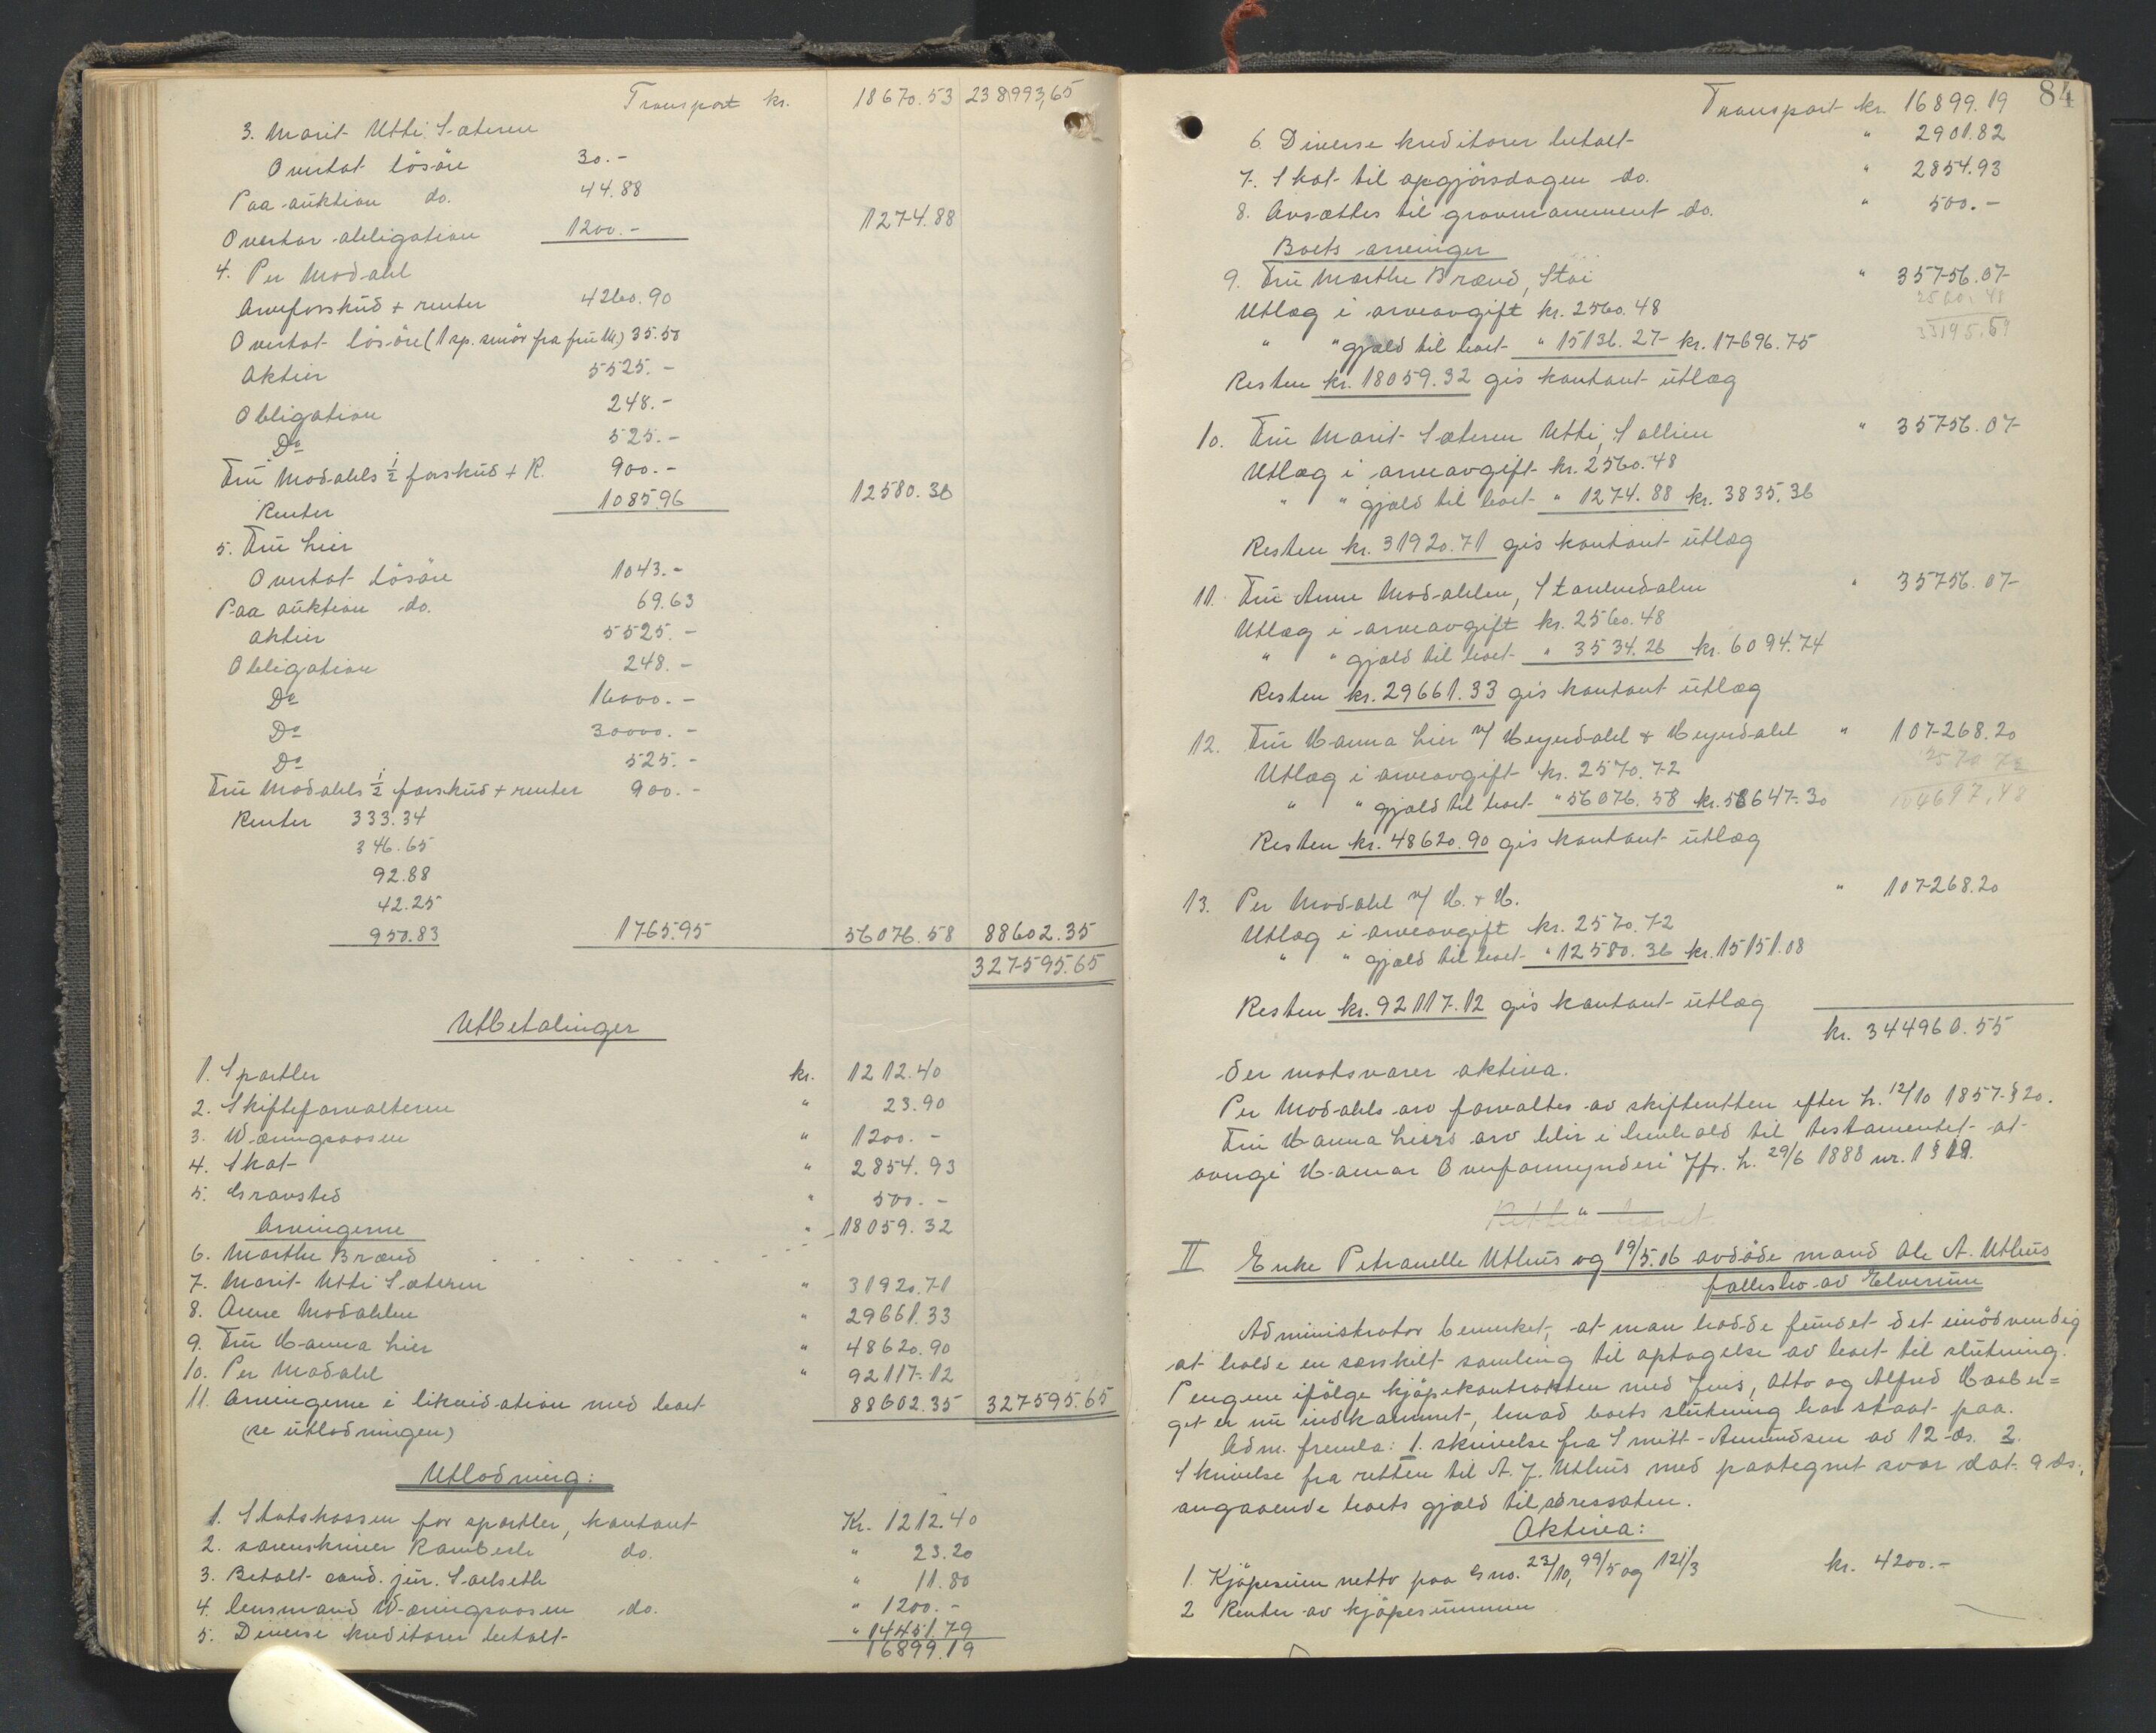 Transport kr. 18670.53 238993,65
3. Marit Utti Sæteren
Overtat lösöre 30.-
Paa auktion do. 44.88
Overtar obligation 1200.- 1274.88
4. Per Modahl
Arveforskud + renter 4260.90
Overtat lösöre (1 sp. smör fra fru M.) 35.50
Aktier 5525.-
Obligation 248.-
Do 525.-
Fru Modahls ½ forskud + R. 900.-
Renter 1085.96 12580.36
5. Fru Lier
Overtat lösöre 1043.-
Paa auktion do. 69.63
Aktier 5525.-
Obligation 248.-
Do 16000.-
Do 30000.-
Do 525.-
Fru Modahls ½ forskud + renter 900.-
Renter 333.34
346.65
92.88
42.25
950.83 1765.95 56076.58 88602.35
327595.65
Utbetalinger
1. Sportler kr. 1212.40
2. Skifteforvalteren " 23.90
3. Wæringsaasen " 1200.-
4. Skat " 2854.93
5. Gravsted " 500.-
Arvingerne " 18059.32
6. Marthe Brænd
7. Marit Utti Sæteren " 31920.71
8. Anne Modahlen " 29661.33
9. Fru Hanna Lier " 48620.90
10. Per Modahl " 92117.12
11. Arvingerne i likvidation med boet 88602.35 327595.65
(se utlodningen)
Utlodning:
1. Statskassen for sportler, kontant Kr. 1212.40
2. sorenskriver Ramberk do. " 23.20
3. Betalt cand. jur. Saelseth " 11.80
4. Lensmand Wæringsaasen do. " 1200.-
5. Diverse kreditorer betalt " 14451.79
16899.19
84
Transport kr. 16899.19
6. Diverse kreditorer betalt " 2901.82
7. Skat til opgjörsdagen do. " 2854.93
8. Avsættes til gravmonument do. " 500.-
Boets arvinger
9. Fru Marthe Brænd, Stai " 35756.07
Utlæg i arveavgift kr. 2560.48 2560.48
" " gjæld til boet " 15136.27 kr. 17696.75 33195.59
Resten kr. 18059.32 gis kontant utlæg
10. Fru Marit Sæteren Utti, Sollien " 35756.07
Utlæg i arveavgift kr. 2560.48
" " gjæld til boet " 1274.88 kr. 3835.36
Resten kr. 31920.71 gis kontant utlæg
11. Fru Anne Modahlen, Storelvedalen " 35756.07
Utlæg i arveavgift kr. 2560.48
" " gjæld til boet " 3534.26 kr. 6094.74
Resten kr. 29661.33 gis kontant utlæg
12. Fru Hanna Lier v/ Heyerdahl & Heyerdahl " 107268.20
Utlæg i arveavgift kr. 2570.72 2570.72
" " gjæld til boet " 56076.58 kr. 58647.30 104697,48
Resten kr. 48620.90 gis kontant utlæg
13. Per Modahl v/ H. & H. " 107268.20
Utlæg i arveavgift kr. 2570.72
" " gjæld til boet " 12580.36 kr. 15151.08
Resten kr. 92117.12 gis kontant utlæg
kr. 344960.55
der motsvarer aktiva.
Per Modahls arv forvaltes av skifteretten efter L. 12/10 1857 § 20.
Fru Hanna Liers arv blir i henhold til testamentet at
avngi Hamar Overformynderi Jfr. L. 29/6 1888 nr. 1 § 19.
Retten hævet
II Enke Petronelle Uthus og 19/5.06 avdöde mand Ole A. Uthus
fællesbo av Elverum
Administrator bemerket, at man hadde fundet det unödvendig
at holde en særskilt samling til optagelse av boet til slutning.
Pengene ifölge kjöpekontrakten med Jens, Otto og Alfred Haaber=
get er nu indkommet, hvad boets slutning har staat paa.
Adm. fremla: 1. skrivelse fra Smitt-Amundsen av 12 ds. 2.
Skrivelse fra retten til A. J. Uthus med paategnet svar dat. 9 ds.,
angaaende boets gjæld til adressaten.
Aktiva:
1. Kjöpesum netto paa Gno. 23/10, 99/5 og 121/3 kr. 4200.-
2 Renter av kjöpesummen